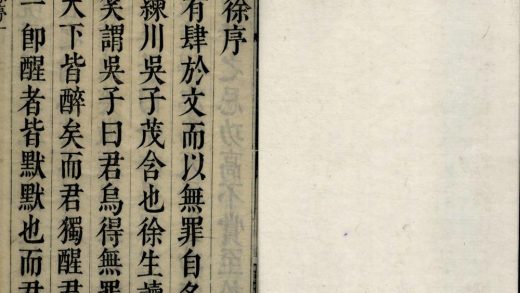 徐序
有肆於文而以無罪自名
練川吳子茂含也徐生讀
笑謂吳子曰君烏得無罪
天下皆醉矣而君獨醒君
一卽醒者皆默默也而君